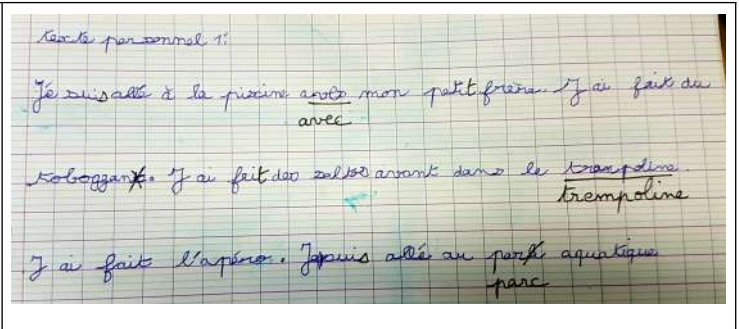 texte personnel 1:
Je suis allé à la piscine avec mon petit frère. J ai fait du
avec
toboggant. J ai fait des saltos avant dans le trampoline.
trempoline
J ai fait l'apéro. Je suis allé au park aquatique
parc